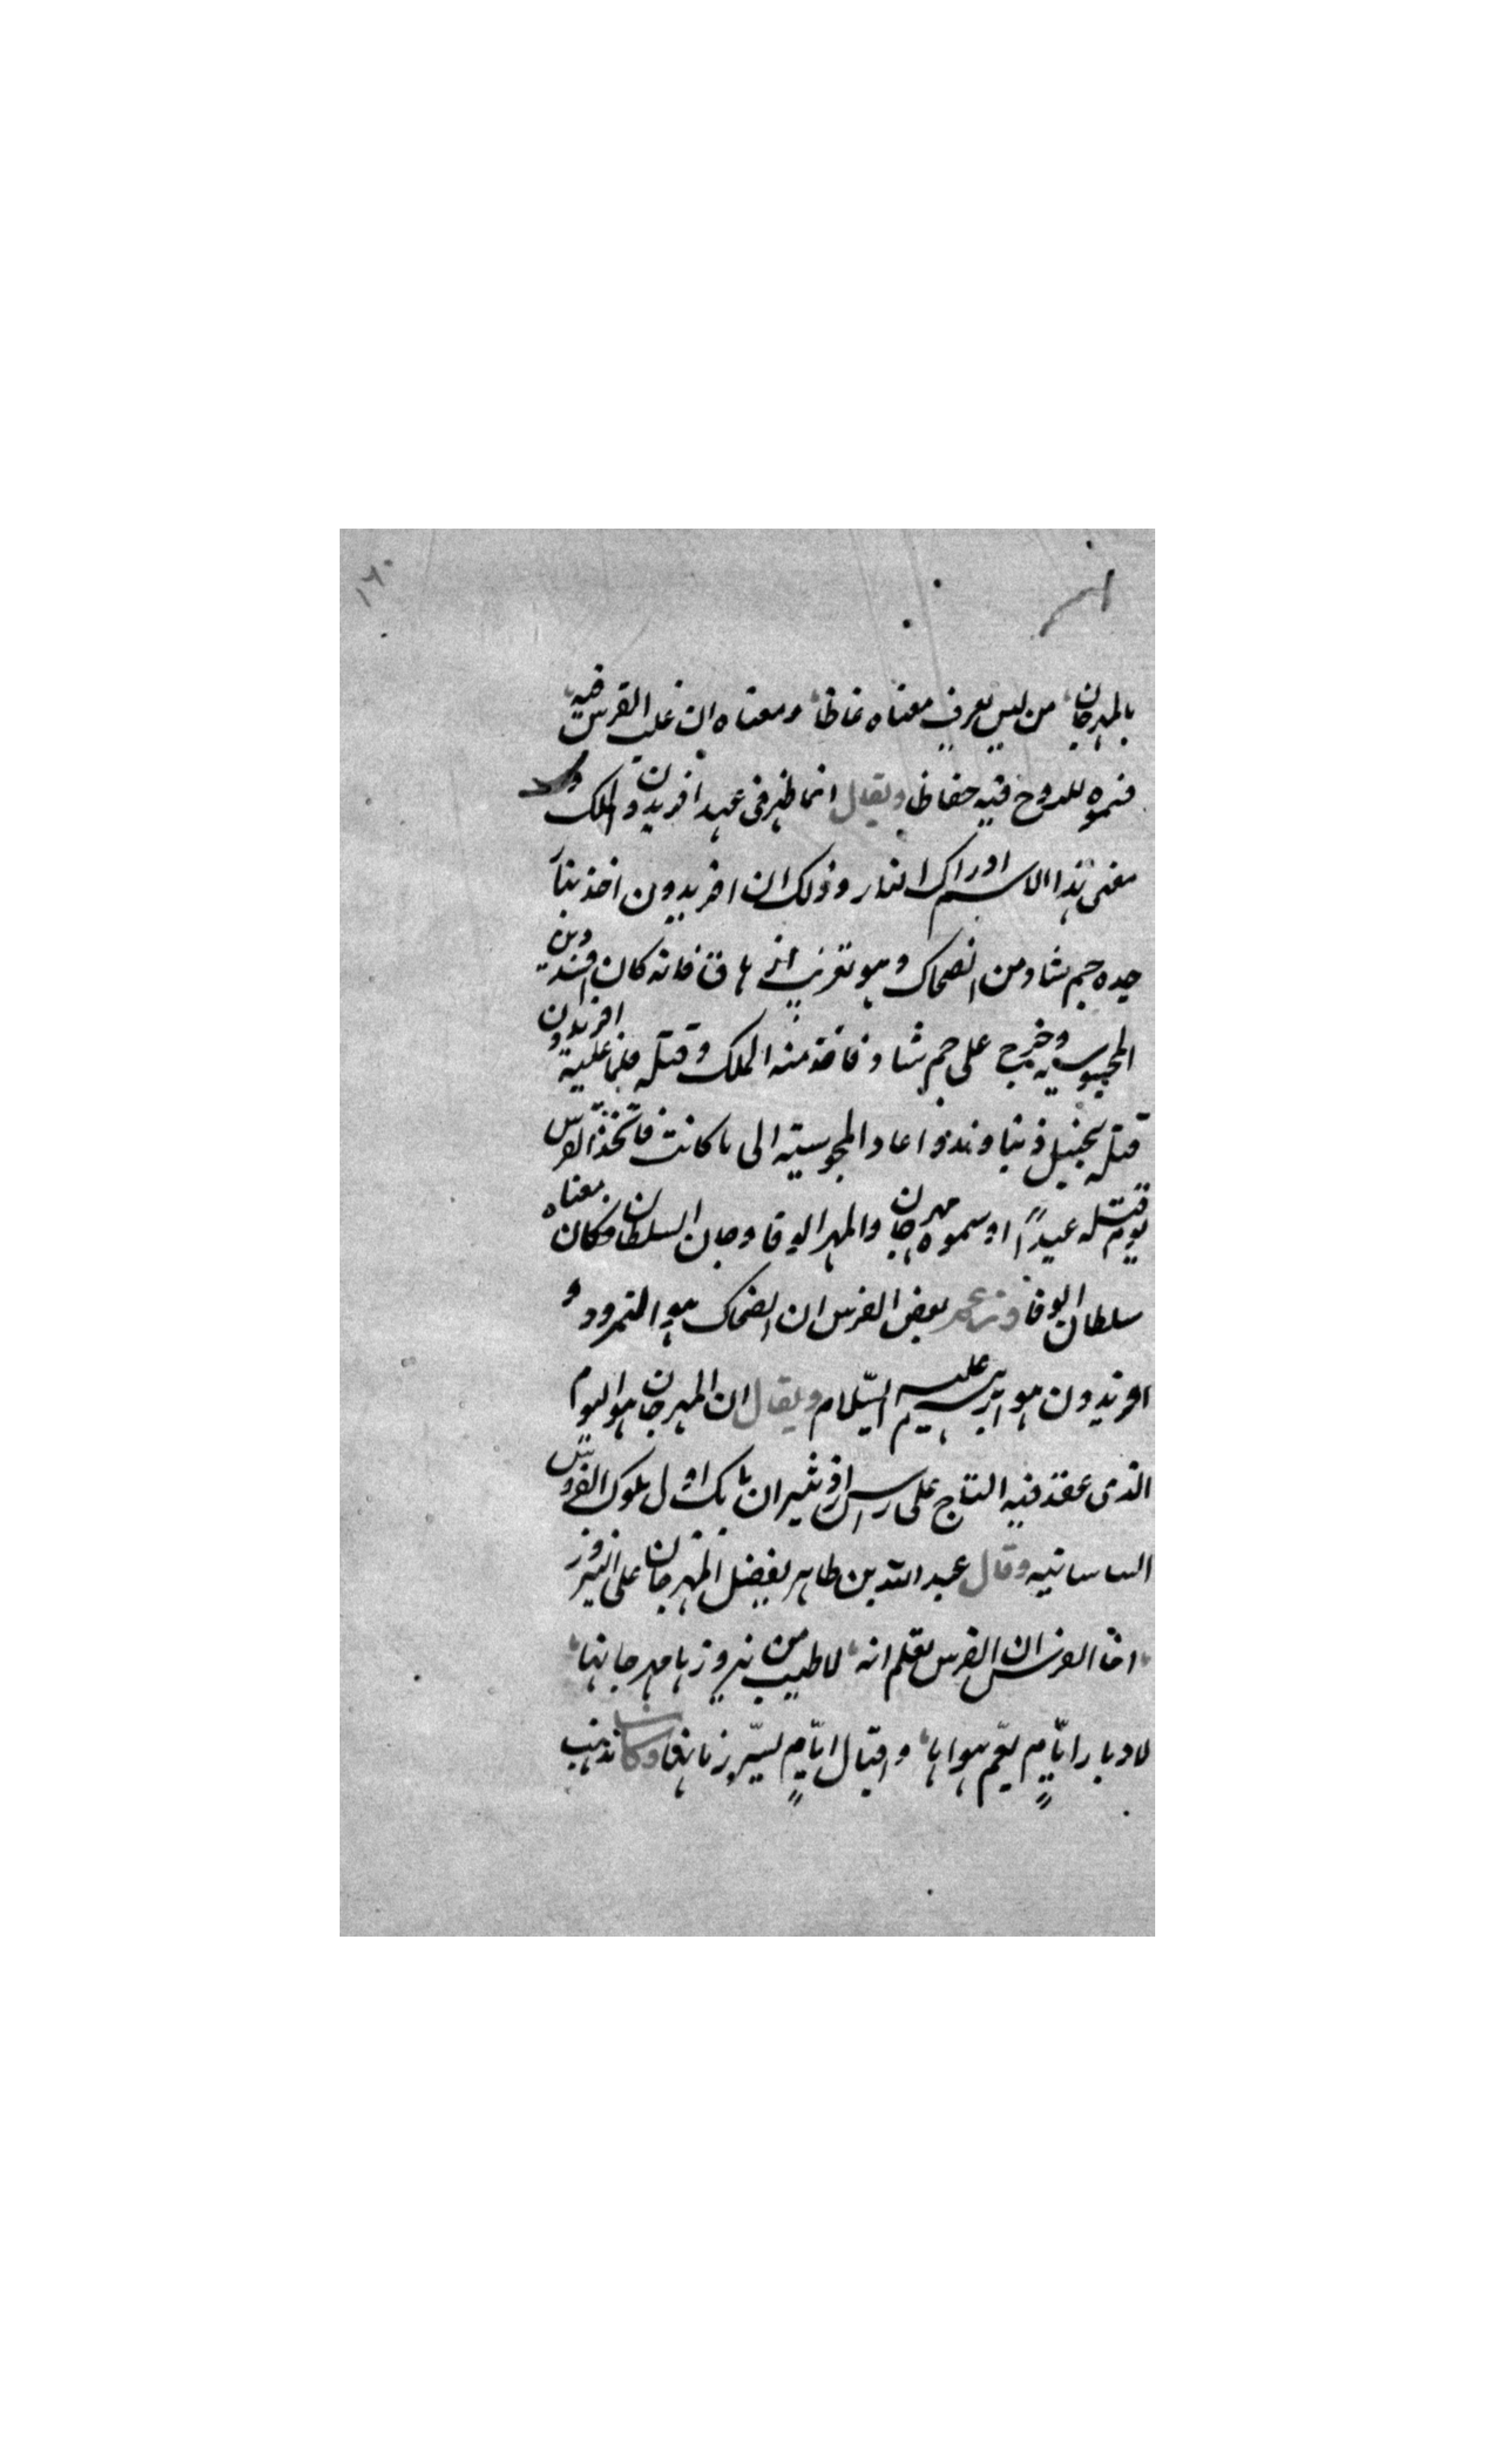 ١٦٠
بالمهرجان من ليس يعرف معناه غاظا ومعناه ان غلب الفرس فيه
فسموه للدوح فيه حفاظا ويقال انما ظهر فى عهد افريدون الملك و
معنى هذا الاسم ادراك الثار وذلك ان افريدون اخذ بثار
جده جم شاد من الضحاك وهو تعريب اژدهاق فانه كان افسد دين
المجوسيه وخرج على جم شاد فاخذ منه الملك وقتله فلما غلبه افريدون
قتله بجبل دنباوند واعاد المجوسية الى ما كانت فاتخذ الفرس
يوم قتله عيدًا وسموه مهرجان والمهر الوفا وجان السلطان فكان معناه
سلطان الوفا وزعم بعض الفرس ان الضحاك هو النمرود و
افريدون هو ابرهيم عليه السلام ويقال ان المهرجان هو اليوم
الذى عقد فيه التاج على راس اردشير ابن بابك اول ملوك الفرس
الساسانيه وقال عبد الله بن طاهر يفضل المهرجان على النيروز
اخا الفرس ان الفرس تعلم انه لاطيب من نيروزها مهرجانها
لادبار ايّامٍ يغم هواها واقبال ايّامٍ يسّر زمانها وكان مذهب